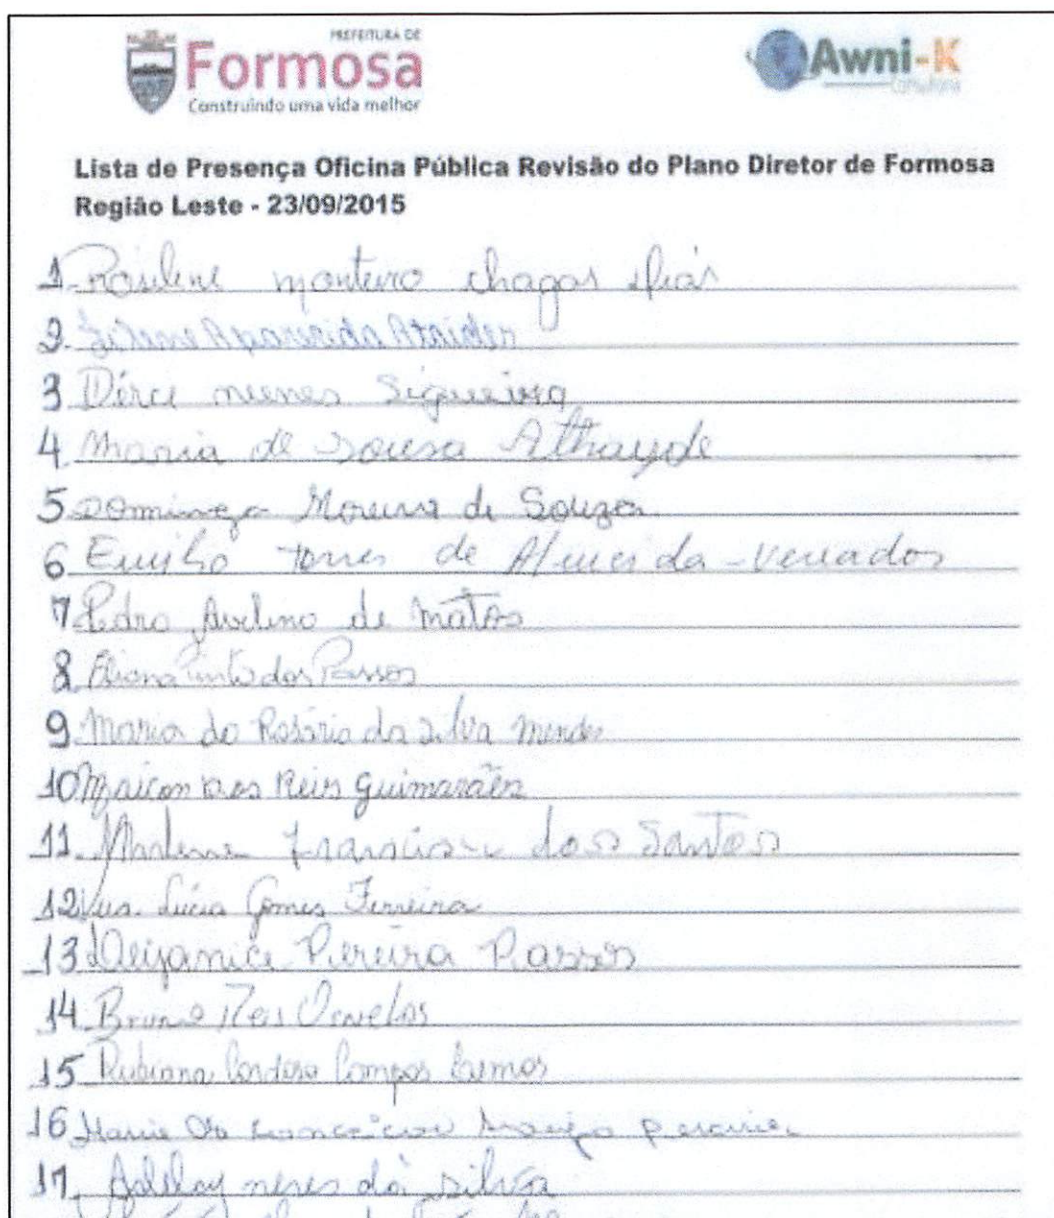 PREFEITURA DE
Formosa
Construindo uma vida melhor
Awni-K
Consultoria
Lista de Presença Oficina Pública Revisão do Plano Diretor de Formosa
Região Leste - 23/09/2015
1. Roselene monteiro chagas
2. Aparecida Ataides
3 Dirce nunes Siqueira
4 Maria de Sousa Athayde
5 Dominga Moreira de Souza
6 Emilio Torres de Almeida - Vereador
7 Pedro Avelino de Matos
8 Eliana Pinto dos Passos
9 Maria do Rosário da Silva Mendes
10 Maicon dos Reis Guimarães
11. Marlene Francisca dos Santos
12 Vera Lúcia Gomes Ferreira
13 Pereira Passos
14 Bruno Reis Ornelas
15 Rubiana Cardoso Campos Lemos
16 Maria da Conceicao Araujo
17. neres da silva